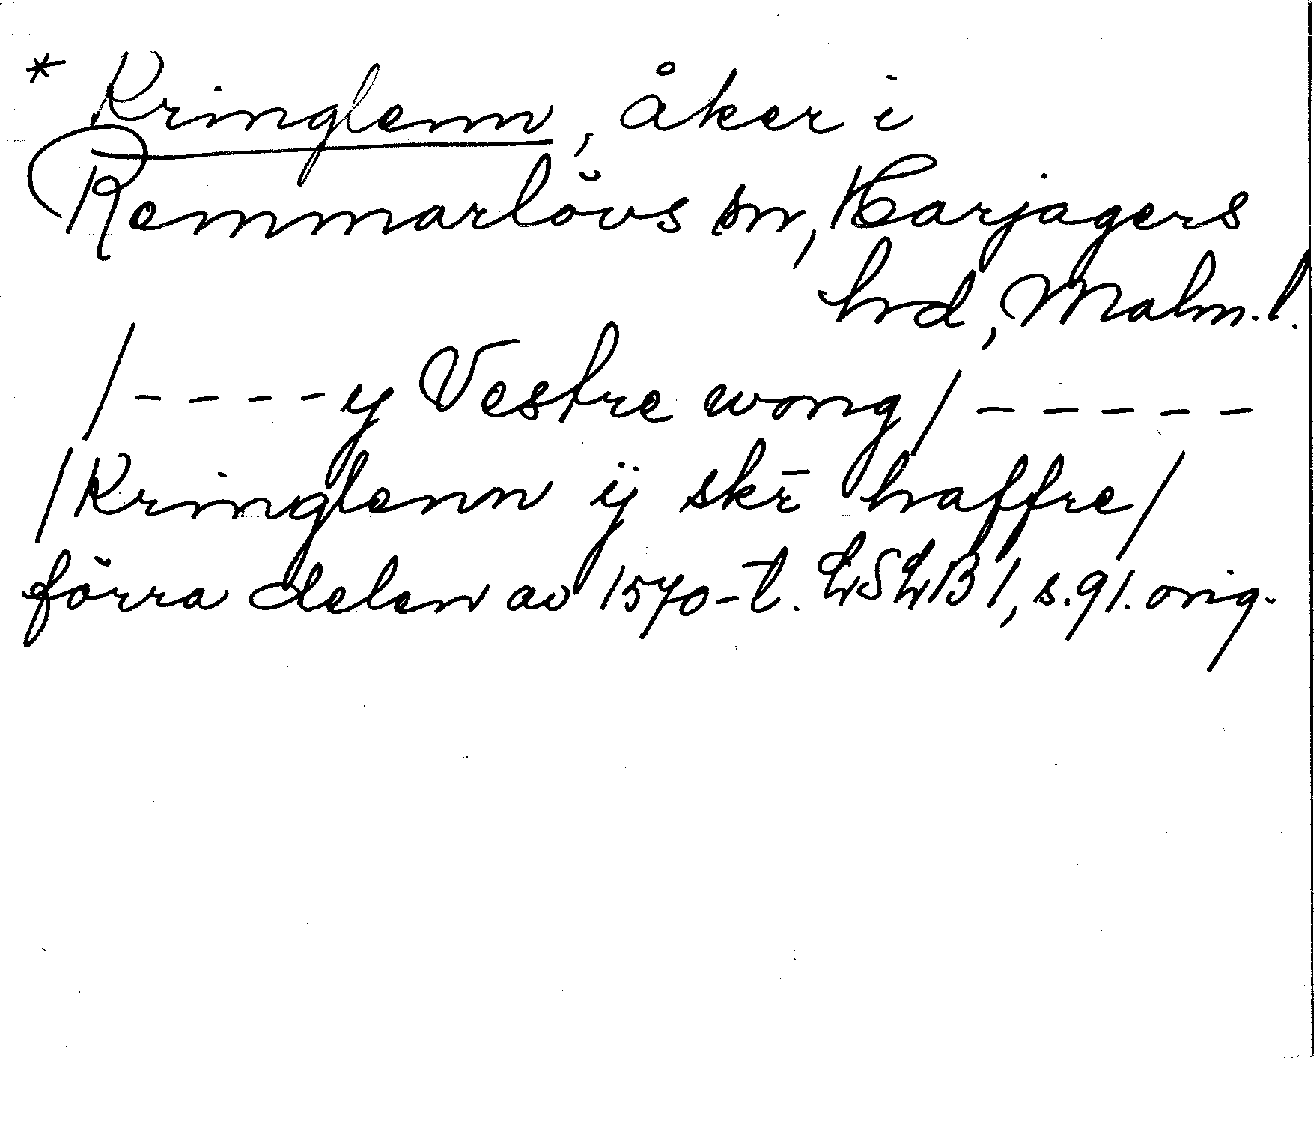 * Kringlenn, åker i
Remmarlövs sn, Harjagers
hd, Malm.l.
/----y Vestre wong/-----
/Kringlenn ij skē haffre/
förra delen av 1570-t. LSLB 1, s.91. orig.